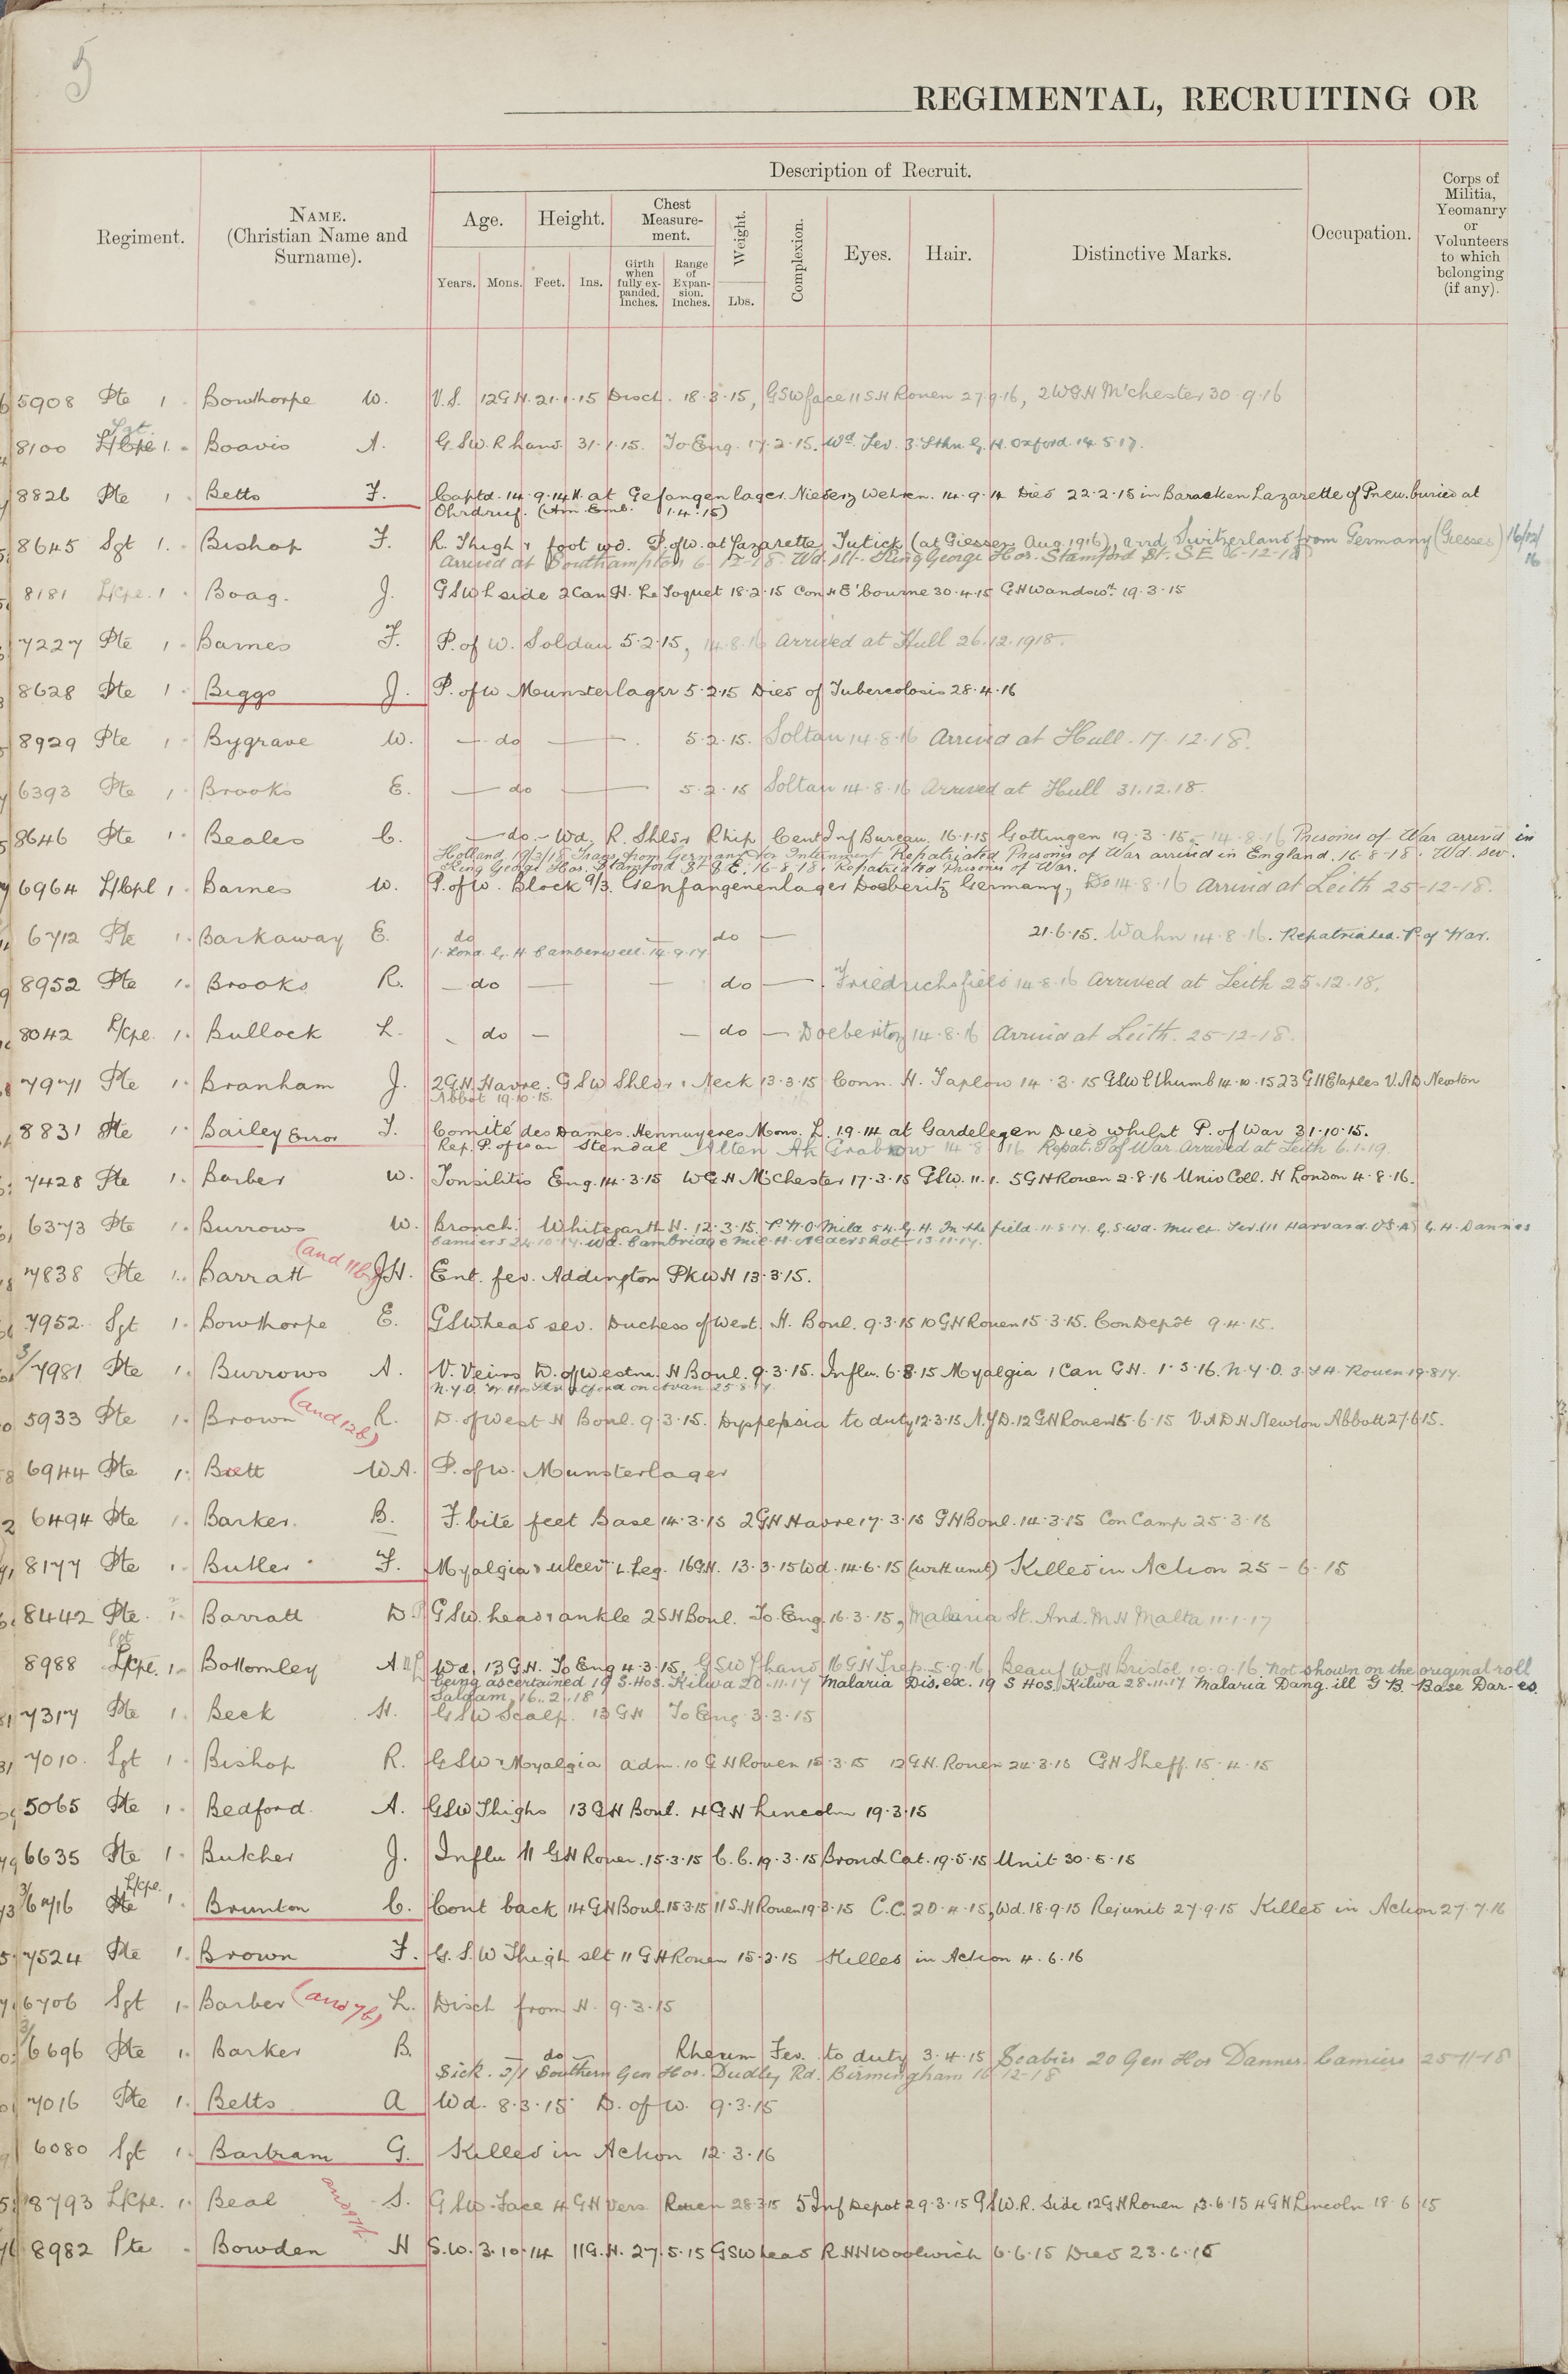 5
REGIMENTAL, RECRUITING OR
Regiment.
NAME.
(Christian Name and
Surname).
Description of Recruit.
Age.
Height.
Chest
Measure-
ment.
Weight.
Complexion.
Eyes.
Hair.
Distinctive Marks.
Occupation.
Corps of
Militia,
Yeomanry
or
Volunteers
to which
belonging
(if any).
Years.
Mons.
Feet.
Ins.
Girth
when
fully ex-
panded.
Inches.
Range
of
Expan-
sion.
Inches.
Lbs.
5908 Pte 1 Bowthorpe W. V.S. 12 G.H. 21.1.15 Disch. 18.3.15, GSW face 11 S.H Rouen 27.9.16, 2 W G.H M'chester 30.9.16
Sgt
8100 L/Cpl 1. Boavis A. G.S.W. R hand 31.1.15. To Eng. 17.2.15. Wd. Sev. 3. Sthn G. H. Oxford. 14.5.17.
8826 Pte 1 Betts F. Captd. 14.9.14 at Gefangenlager. Niederz Wehren. 14.9.14 Died 22.2.15 in Baracken Lazarette of Pneu. buried at
Ohrdruf. (Am. Emb. 1.4.15)
8645 Sgt 1. Bishop F. R. Thigh & foot wd. P. of W. at Lazarette Jutick (at Giessen Aug. 1916), arrd. Switzerland from Germany (Giessen) 16/12/16
Arrived at Southampton 6-12-18. Wd. slt. King George Hos. Stamford St. S.E 6-12-18
8181 L/Cpl. 1 Boag. J. GSW L side 2 Can H. Le Toquet 18.2.15 Con H E'bourne 30.4.15 G H Wandswth. 19.3.15
7227 Pte 1 Barnes F. P. of W. Soldau 5.2.15, 14.8.16 Arrived at Hull 26.12.1918.
8628 Pte 1 Biggs J. P. of W Munsterlager 5.2.15 Died of Tuberculosis 28.4.16
8929 Pte 1 Bygrave W. — do — 5.2.15. Soltau 14.8.16 Arrived at Hull. 17.12.18.
6393 Pte 1 Brooks E. — do — 5.2.15 Soltau 14.8.16 Arrived at Hull 31.12.18.
8646 Pte 1 Beales C. — do — Wd. R. Shldr R hip Cent Inf Bureau. 16.1.15 Gottingen 19.3.15 - 14.8.16 Prisoner of War arrived in
Holland 19/3/18 Trans. from Germany for Internment Repatriated Prisoner of War arrived in England. 16-8-18. Wd. sev.
King George Hos. Stamford St. S.E. 16-8-18. Repatriated Prisoner of War.
6964 L/Cpl 1. Barnes W. P. of W. Block 9/3. Genfangenenlager Doeberitz Germany, Do 14.8.16 Arrived at Leith 25-12-18.
6712 Pte 1. Barkaway E. do — do — 21.6.15. Wahn 14.8.16. Repatriated. P. of War.
1. Lond. G. H. Camberwell. 14.9.17
8952 Pte 1. Brooks R. — do — do — Friedrichsfield 14.8.16 Arrived at Leith 25.12.18.
8042 L/Cpl. 1. Bullock L. do — do — Doeberitz 14.8.16 Arrived at Leith. 25-12-18.
7971 Pte 1. Branham J. 2 G.H. Havre. GSW Shldr & Neck 13.3.15 Conn. H. Taplow 14.3.15 GSW L thumb 14.10.15 23 G H Etaples V.A.D Newton
Abbot 19.10.15.
8831 Pte 1. Bailey Error F. Comité des Dames. Hennuyeres Mons. L. 19.14 at Gardelegen Died whilst P. of War 31.10.15.
Rep. P. of War Stendal Alten Ah Grabow 14.8.16 Repat. P of War. Arrived at Leith 6.1.19.
7428 Pte 1. Barber W. Tonsilitis Eng. 14.3.15 W G H M'Chester 17.3.15 GSW. 11.1. 5 G H Rouen 2.8.16 Univ Coll. H London 4.8.16.
6373 Pte 1. Burrows W. Bronch. Whitegarth H. 12.3.15. P.U.O. Mild 54 G. H. In the field 11.8.17. G.S.Wd. Mult. Sev. 11 Harvard (U.S.A) G. H. Dannes
Camiers 24.10.17. Wd. Cambridge Mil. H. Aldershot 13.11.17.
7838 Pte 1. Barratt (and 116) J.H. Ent. fev. Addington Pk W H 13.3.15.
7952 Sgt 1. Bowthorpe E. GSW head sev. Duchess of West. H. Boul. 9.3.15 10 G H Rouen 15.3.15. Con Depôt 9.4.15.
3/7981 Pte 1. Burrows A. V. Veins D. of Westm. H Boul. 9.3.15. Influ. 6.8.15 Myalgia 1 Can G.H. 1.5.16. N.Y.D. 3. S H. Rouen 19.8.17.
5933 Pte 1. Brown (and 126) R. D. of West H Boul. 9.3.15. Dyspepsia to duty 12.3.15 N.Y.D. 12 G H Rouen 15.6.15 V.A.D H Newton Abbott 27.6.15.
6944 Pte 1. Brett W.A. P. of W. Munsterlager
6494 Pte 1. Barker. B. F. bite feet Base 14.3.15 2 G H Havre 17.3.15 G H Boul. 14.3.15 Con Camp 25.3.15
8177 Pte 1. Butler F. Myalgia & ulcer L. Leg. 16 G.H. 13.3.15 Wd. 14.6.15 (with unit) Killed in Action 25-6.15
8442 Pte. 1. Barratt D. GSW. head & ankle 2 S H Boul. To Eng. 16.3.15, Malaria St. And. M H Malta 11.1.17
Sgt
8988 L/Cpl. 1. Bottomley A Wd. 13 G.H. To Eng 4.3.15, GSW L hand 16 G H Trep. 5.9.16, Beauf W H Bristol 10.9.16 Not shown on the original roll
being ascertained 19 S. Hos. Kilwa 20.11.17 Malaria Dis. ex. 19 S Hos. Kilwa 28.11.17 Malaria Dang. ill G B. Base Dar-es
Salaam, 16.2.18
7317 Pte 1 Beck H. GSW Scalp. 13 G H To Eng 3.3.15
7010. Sgt 1 Bishop R. GSW & Myalgia adm. 10 G H Rouen 15.3.15 12 G.H. Rouen 24.3.15 G H Sheff. 15.4.15
5065 Pte 1. Bedford A. GSW Thighs 13 G H Boul. 4 G H Lincoln 19.3.15
6635 Pte 1. Butcher J. Influ 11 G H Rouen. 15.3.15 C.C. 19.3.15 Bronch Cat. 19.5.15 Unit 30.5.15
L/Cpl.
3/6716 Pte 1. Brunton C. Cont back 14 G H Boul. 15.3.15 11 S. H Rouen 19.3.15 C.C. 20.4.15, Wd. 18.9.15 Rej unit 27.9.15 Killed in Action 27.7.16
7524 Pte 1. Brown F. G.S.W Thigh slt 11 G H Rouen 15.3.15 Killed in Action 4.6.16
6706 Sgt 1. Barber (and 76) L. Disch from H. 9.3.15
3/6696 Pte 1. Barker B. — do — Rheum Fev. to duty 3.4.15 Scabies 20 Gen Hos Dannes Camiers 25-11-18
Sick. 2/1 Southern Gen Hos. Dudley Rd. Birmingham 16-12-18
7016 Pte 1. Betts A Wd. 8.3.15 D. of W. 9.3.15
6080 Sgt 1. Bartram G. Killed in Action 12.3.16
8793 L/Cpl. 1. Beal S. GSW Face 4 G H Vers Rouen 28.3.15 5 Inf Depot 29.3.15 GSW. R. Side 12 G H Rouen 13.6.15 4 G H Lincoln 18.6.15
8982 Pte Bowden H S.W. 3.10.14 11 G.H. 27.5.15 GSW head R.H.H Woolwich 6.6.15 Died 23.6.15